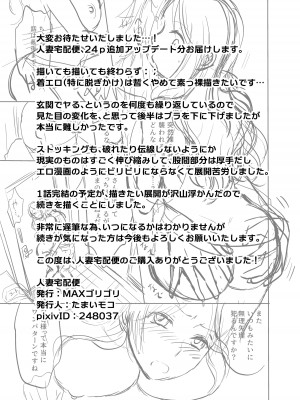 大変お待たせいたしました…！
人妻宅配便、24p追加アップデート分お届けします。
描いても描いても終わらず；；
着エロ(特に脱ぎかけ)は暫くやめて素っ裸描きたいです…
玄関でヤる、というのを何度も繰り返しているので
見た目の変化を、と思って後半はブラを下に下げましたが
本当に難しかったです。
ストッキングも、破れたり伝線しないようにか
現実のものはすごく伸び縮みして、股間部分は厚手だし
エロ漫画のようにビリビリにならなくて展開苦労しました。
1話完結の予定が、描きたい展開が沢山浮かんだので
続きを描くことにしました。
非常に遅筆な為、いつになるかはわかりませんが
続きが気になった方は今後もよろしくお願いいたします。
この度は、人妻宅配便のご購入ありがとうございました！
人妻宅配便
発行：MAXゴリゴリ
発行人：たまいモコ
pixivID：248037
また
いつもみたいに
無理矢理
犯るんですか？
様って本当に
パターンですね